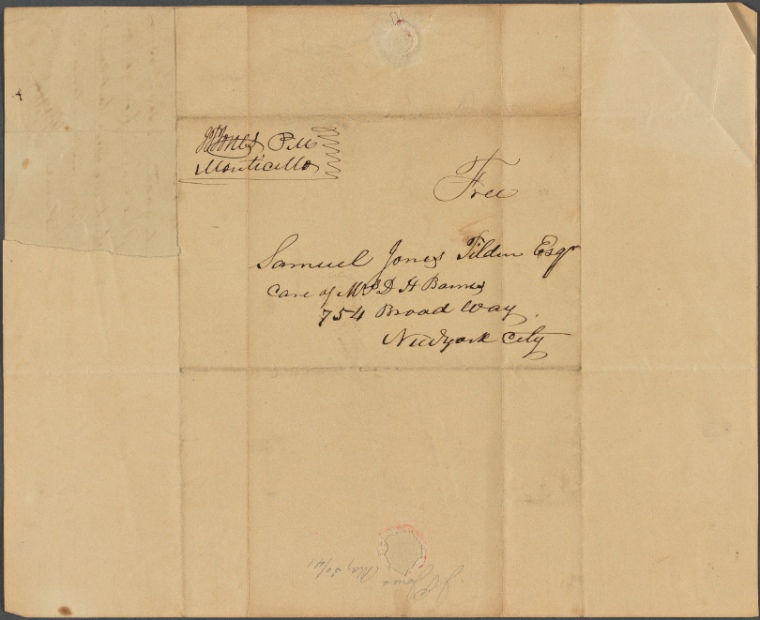 Jones P.M
Monticello
Free
Samuel Jones Tilden Esqr
Care of Mrs D H Barnes
754 Broad Way.
Newyork City
Jones May